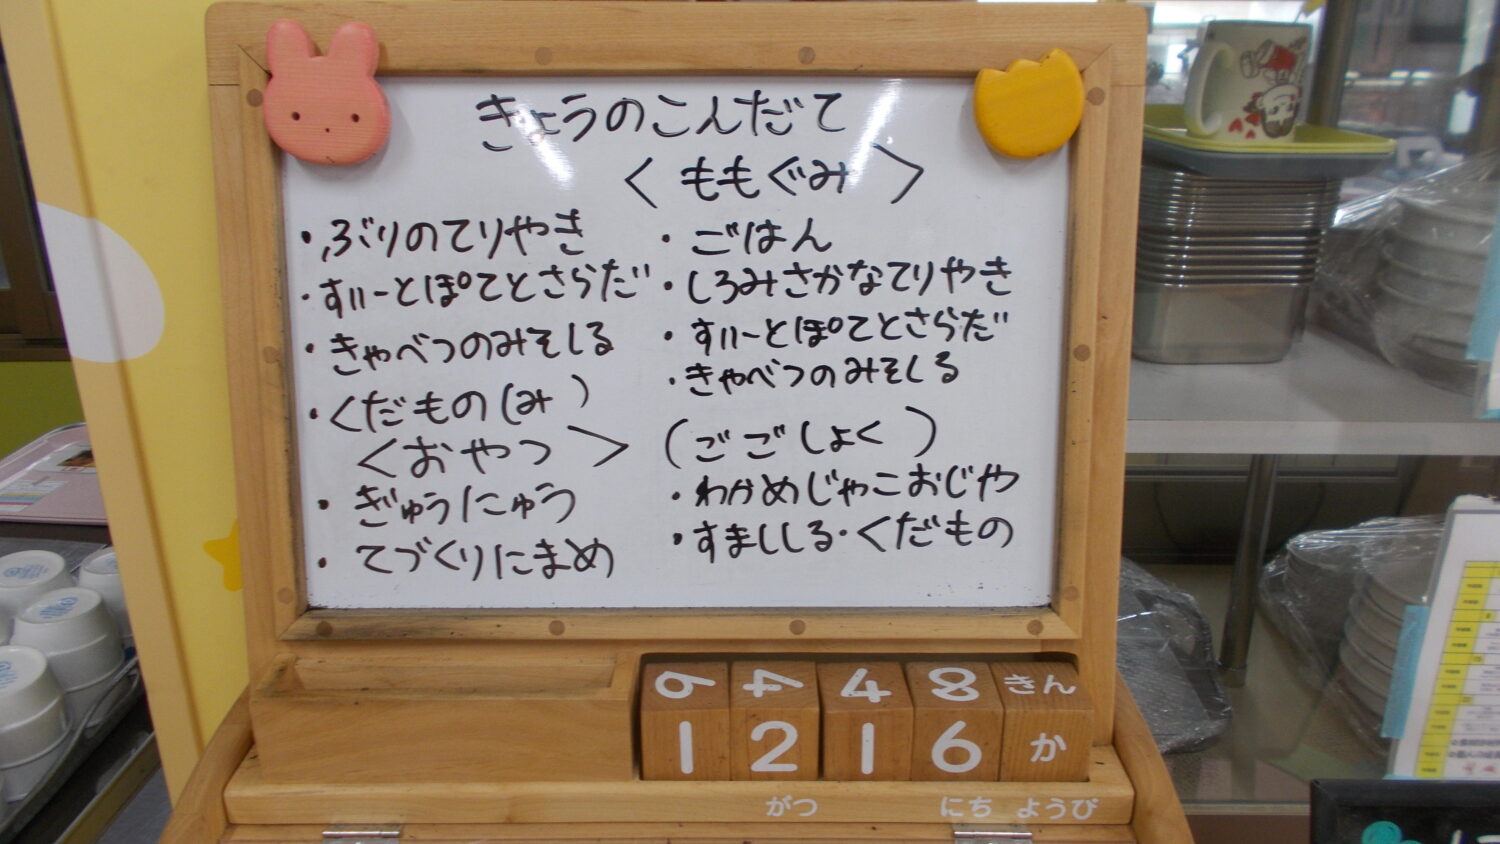 きょうのこんだて
＜ももぐみ＞
・ぶりのてりやき
・すいーとぽてとさらだ
・きゃべつのみそしる
・くだもの(み )
＜おやつ＞
・ぎゅうにゅう
・てづくりにまめ
・ごはん
・しろみさかなてりやき
・すいーとぽてとさらだ
・きゃべつのみそしる
(ごごしょく)
・わかめじゃこおじや
・すましじる・くだもの
6 4 4 8 きん
1 2 1 6 か
がつ にち ようび